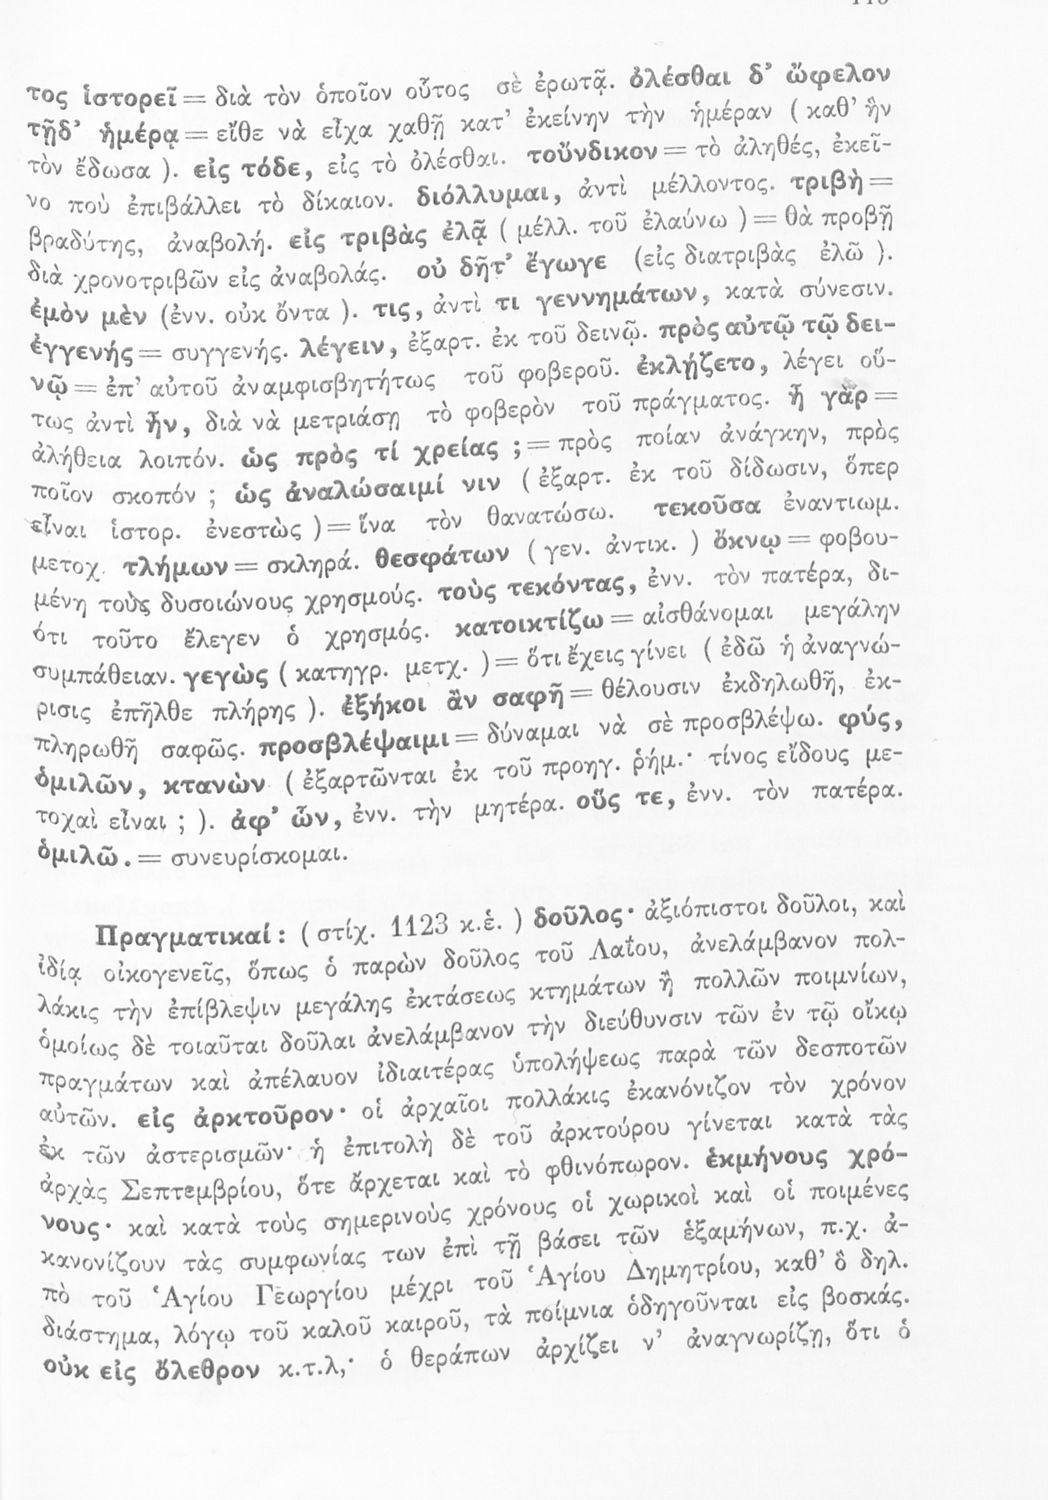 τος ἱστορεῖ = διὰ τὸν ὁποῖον οὗτος σὲ ἐρωτᾷ. ὀλέσθαι δ᾽ ὤφελον
τῇδ᾽ ἡμέρᾳ = εἴθε νὰ εἶχα χαθῇ κατ᾽ ἐκείνην τὴν ἡμέραν ( καθ᾽ ἣν
τὸν ἔδωσα ). εἰς τόδε, εἰς τὸ ὀλέσθαι. τοὔνδικον = τὸ ἀληθές, ἐκεῖ-
νο ποὺ ἐπιβάλλει τὸ δίκαιον. διόλλυμαι, ἀντὶ μέλλοντος. τριβὴ =
βραδύτης, ἀναβολή. εἰς τριβὰς ἐλᾷ ( μέλλ. τοῦ ἐλαύνω ) = θὰ προβῇ
διὰ χρονοτριβῶν εἰς ἀναβολάς. οὐ δῆτ᾽ ἔγωγε (εἰς διατριβὰς ἐλῶ ).
ἐμὸν μὲν (ἐνν. οὐκ ὄντα ). τις, ἀντὶ τι γεννημάτων, κατὰ σύνεσιν.
ἐγγενής = συγγενής. λέγειν, ἐξαρτ. ἐκ τοῦ δεινῷ. πρὸς αὐτῷ τῷ δει-
νῷ = ἐπ᾽ αὐτοῦ ἀναμφισβητήτως τοῦ φοβεροῦ. ἐκλῄζετο, λέγει οὕ-
τως ἀντὶ ἦν, διὰ νὰ μετριάσῃ τὸ φοβερὸν τοῦ πράγματος. ἦ γὰρ =
ἀλήθεια λοιπόν. ὡς πρὸς τί χρείας ; = πρὸς ποίαν ἀνάγκην, πρὸς
ποῖον σκοπόν ; ὡς ἀναλώσαιμί νιν ( ἐξαρτ. ἐκ τοῦ δίδωσιν, ὅπερ
εἶναι ἱστορ. ἐνεστὼς ) = ἵνα τὸν θανατώσω. τεκοῦσα ἐναντιωμ.
μετοχ. τλήμων = σκληρά. θεσφάτων ( γεν. ἀντικ. ) ὄκνῳ = φοβου-
μένη τοὺς δυσοιώνους χρησμούς. τοὺς τεκόντας, ἐνν. τὸν πατέρα, δι-
ότι τοῦτο ἔλεγεν ὁ χρησμός. κατοικτίζω = αἰσθάνομαι μεγάλην
συμπάθειαν. γεγὼς ( κατηγρ. μετχ. ) = ὅτι ἔχεις γίνει ( ἐδῶ ἡ ἀναγνώ-
ρισις ἐπῆλθε πλήρης ). ἐξήκοι ἂν σαφῆ = θέλουσιν ἐκδηλωθῆ, ἐκ-
πληρωθῆ σαφῶς. προσβλέψαιμι = δύναμαι νὰ σὲ προσβλέψω. φύς,
ὁμιλῶν, κτανὼν ( ἐξαρτῶνται ἐκ τοῦ προηγ. ῥήμ.· τίνος εἴδους με-
τοχαὶ εἶναι ; ). ἀφ᾽ ὧν, ἐνν. τὴν μητέρα. οὕς τε, ἐνν. τὸν πατέρα.
ὁμιλῶ. = συνευρίσκομαι.
Πραγματικαί: ( στίχ. 1123 κ.ἑ. ) δοῦλος· ἀξιόπιστοι δοῦλοι, καὶ
ἰδίᾳ οἰκογενεῖς, ὅπως ὁ παρὼν δοῦλος τοῦ Λαΐου, ἀνελάμβανον πολ-
λάκις τὴν ἐπίβλεψιν μεγάλης ἐκτάσεως κτημάτων ἢ πολλῶν ποιμνίων,
ὁμοίως δὲ τοιαῦται δοῦλαι ἀνελάμβανον τὴν διεύθυνσιν τῶν ἐν τῷ οἴκῳ
πραγμάτων καὶ ἀπέλαυον ἰδιαιτέρας ὑπολήψεως παρὰ τῶν δεσποτῶν
αὐτῶν. εἰς ἀρκτοῦρον· οἱ ἀρχαῖοι πολλάκις ἐκανόνιζον τὸν χρόνον
ἐκ τῶν ἀστερισμῶν· ἡ ἐπιτολὴ δὲ τοῦ ἀρκτούρου γίνεται κατὰ τὰς
ἀρχὰς Σεπτεμβρίου, ὅτε ἄρχεται καὶ τὸ φθινόπωρον. ἐκμήνους χρό-
νους· καὶ κατὰ τοὺς σημερινοὺς χρόνους οἱ χωρικοὶ καὶ οἱ ποιμένες
κανονίζουν τὰς συμφωνίας των ἐπὶ τῇ βάσει τῶν ἑξαμήνων, π.χ. ἀ-
πὸ τοῦ Ἁγίου Γεωργίου μέχρι τοῦ Ἁγίου Δημητρίου, καθ᾽ ὃ δηλ.
διάστημα, λόγῳ τοῦ καλοῦ καιροῦ, τὰ ποίμνια ὁδηγοῦνται εἰς βοσκάς.
οὐκ εἰς ὄλεθρον κ.τ.λ,· ὁ θεράπων ἀρχίζει ν᾽ ἀναγνωρίζῃ, ὅτι ὁ